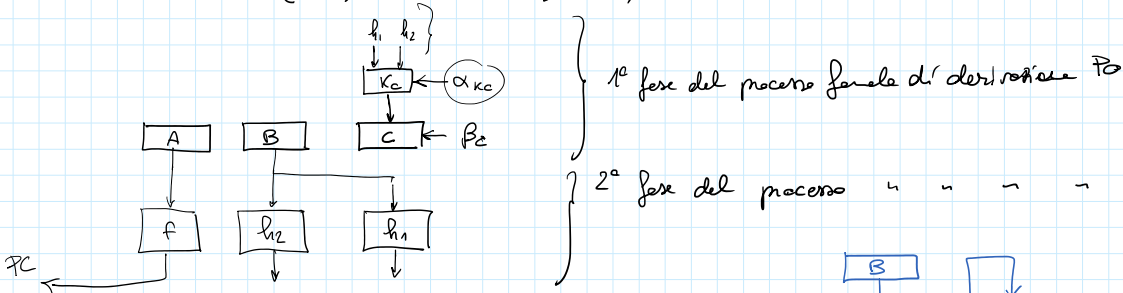 h₁ h₂ }
Kc ← α Kc
A B C ← βc
1ª fase del processo formale di derivazione PO
2ª fase del processo " " " "
f h2 h1
PC
B